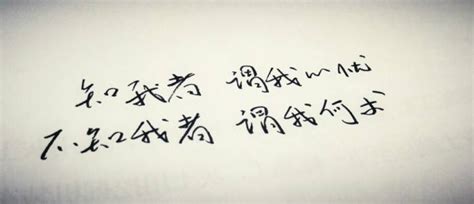 知我者 谓我心忧
不知我者 谓我何求